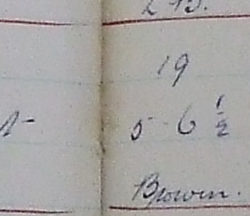 19
5-6 1/2
Brown.